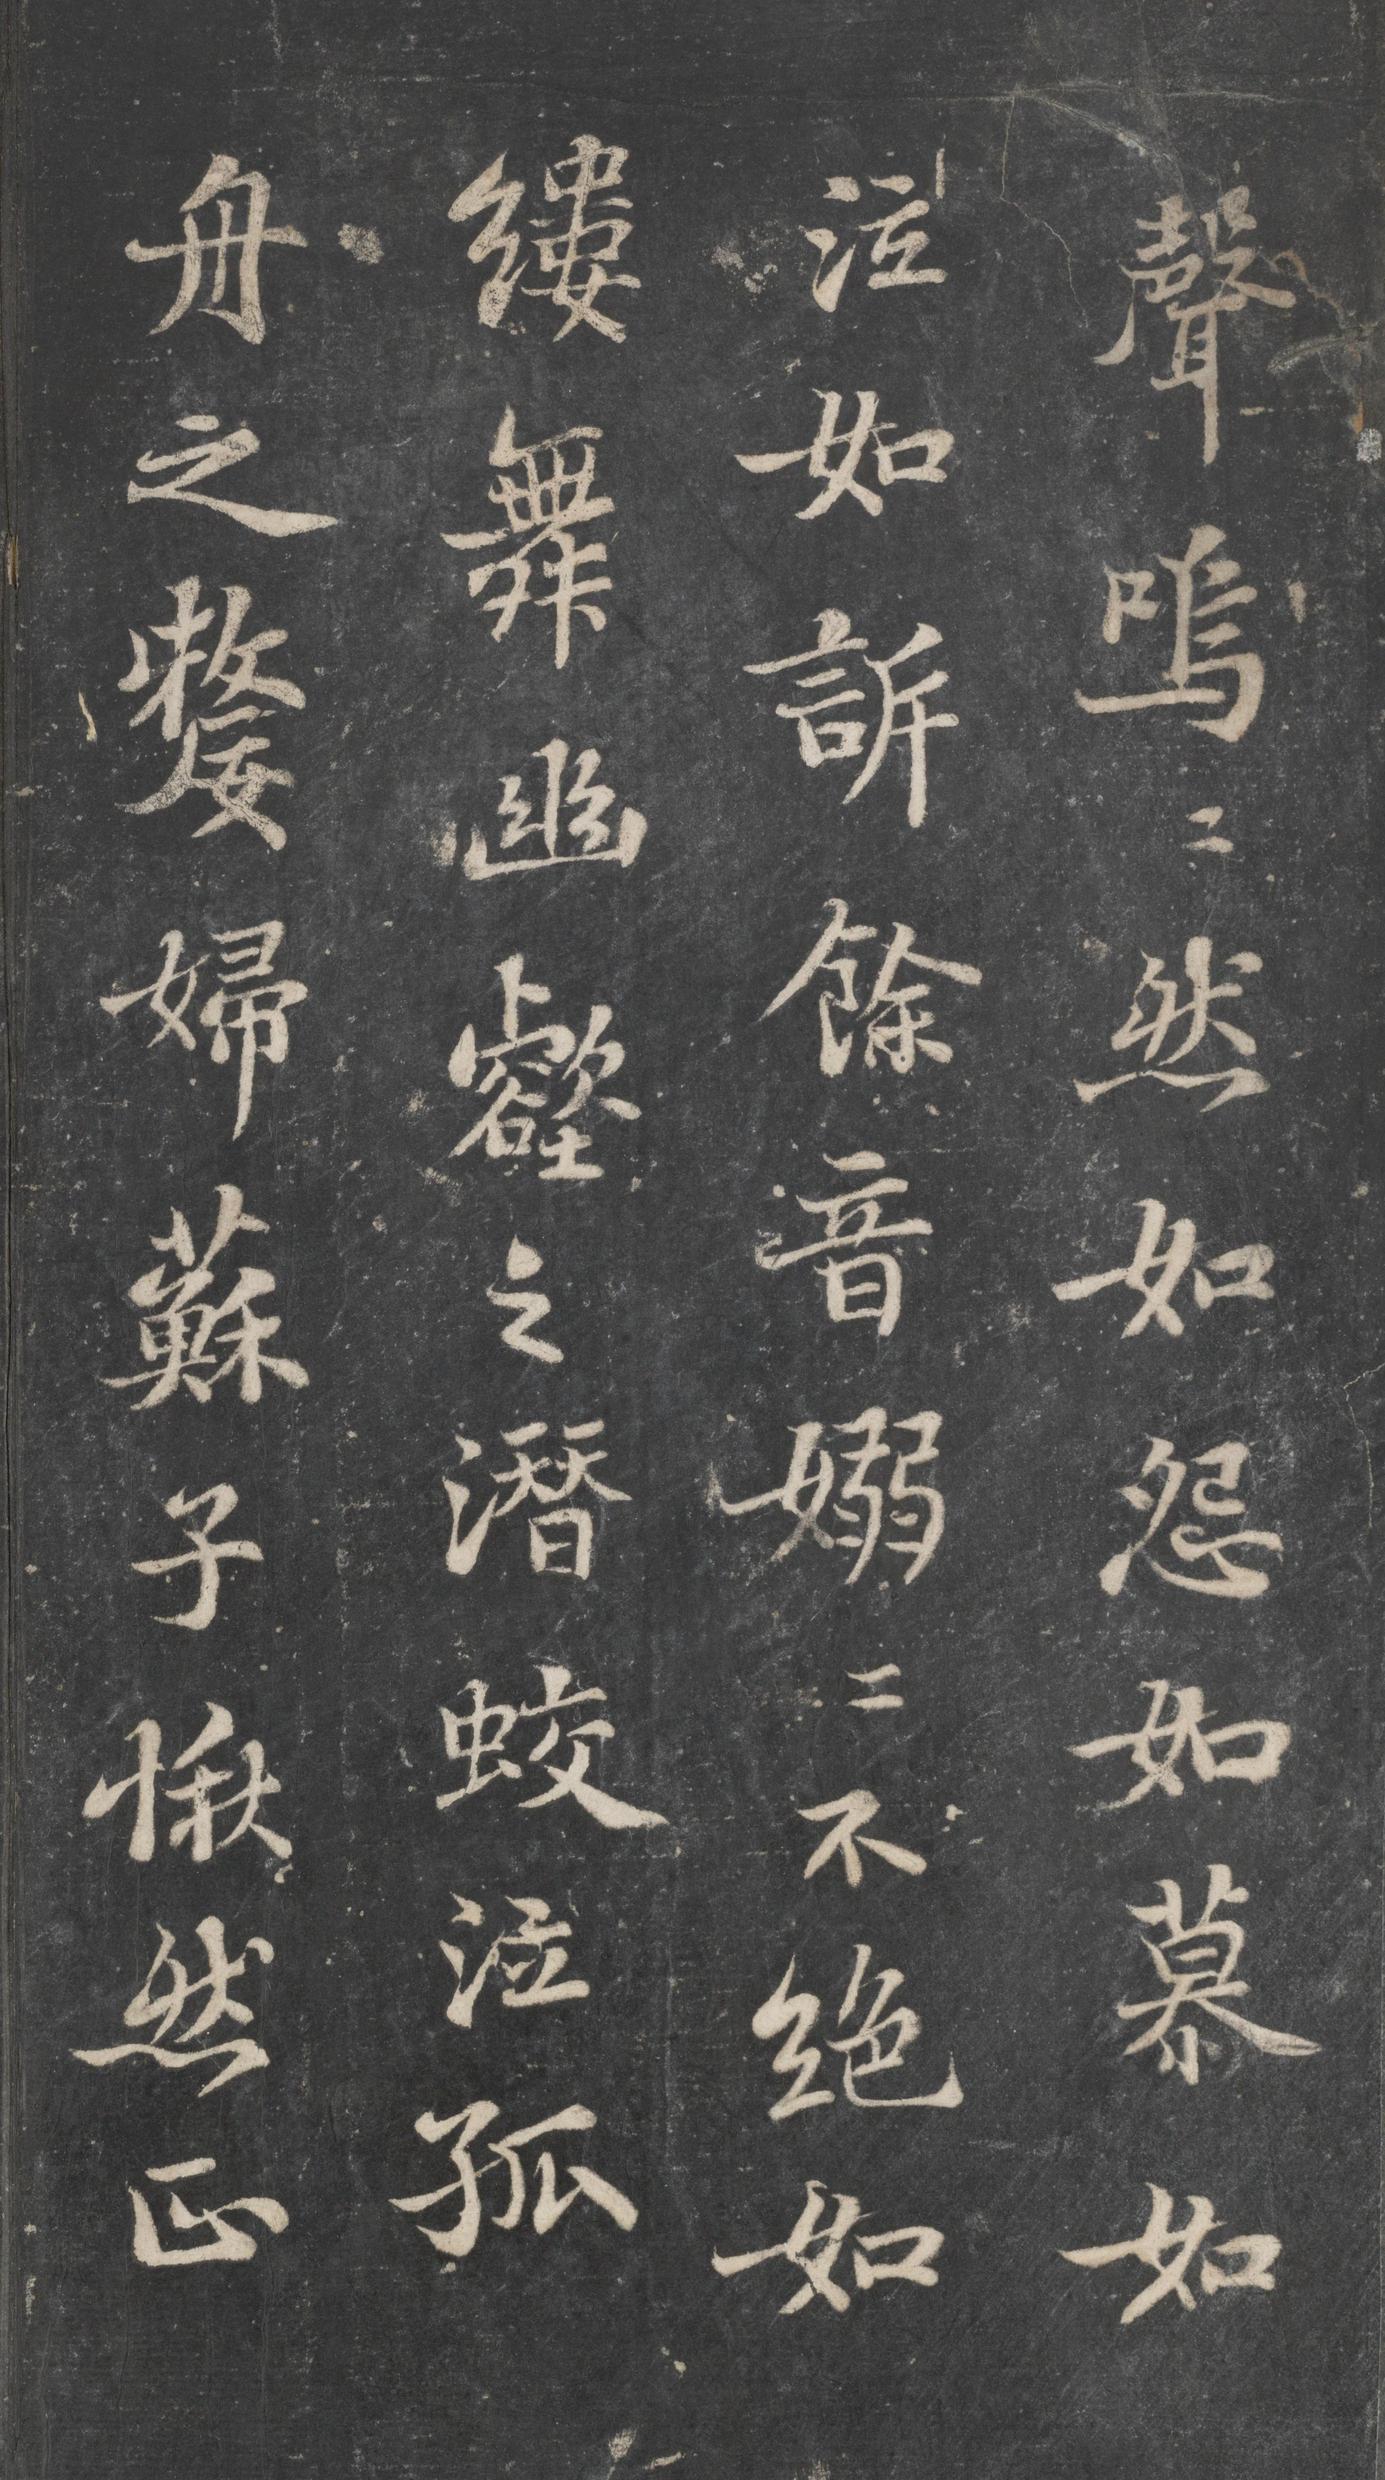 聲嗚二然如怨如慕如
泣如訴餘音嫋二不絕如
縷舞幽壑之潛蛟泣孤
舟之嫠婦蘇子愀然正